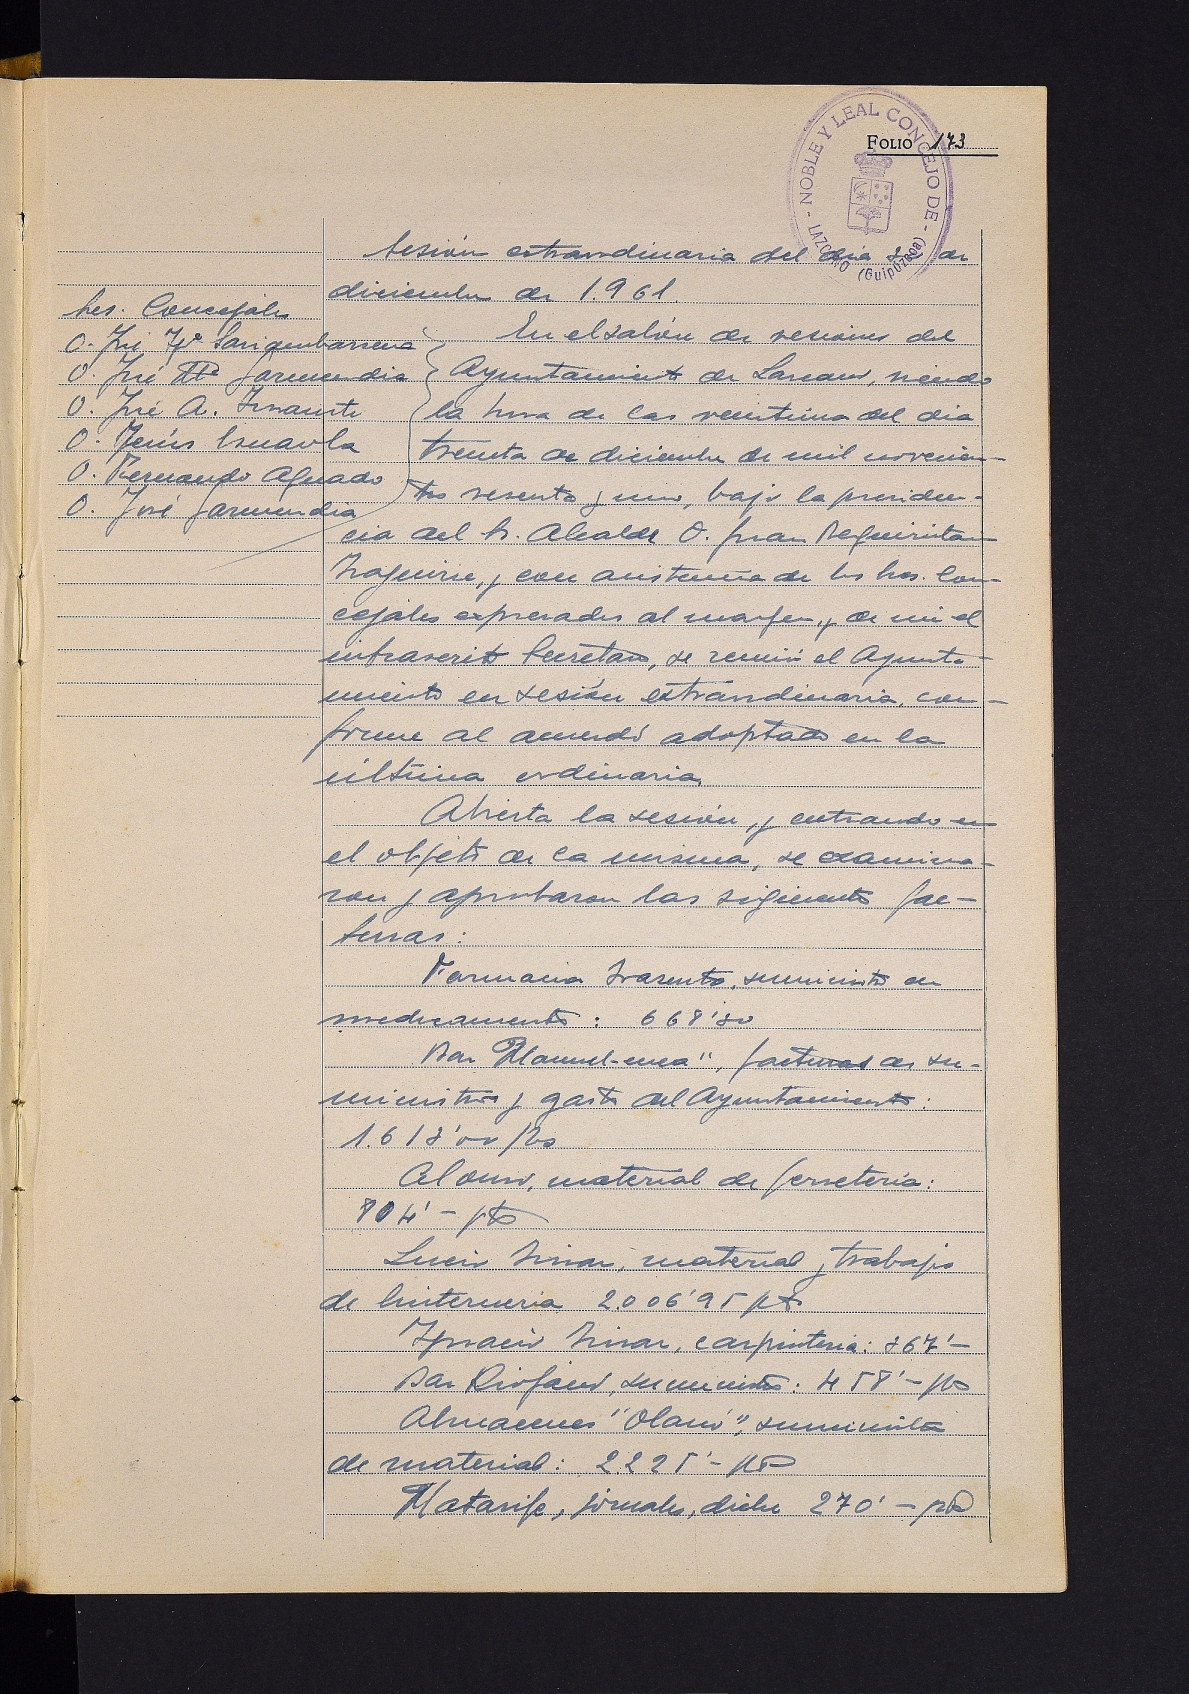 FOLIO 173
NOBLE Y LEAL CONCEJO DE
LAZCANO (Guipúzcoa)
Sesión extraordinaria del día de
diciembre de 1.961.
Sres. Concejales
D. José
D. José Mª Garmendia
D. José A. Irasuste
D. Jesús
D. Fernando Aguado
D. José Garmendia
En el salón de sesiones del
Ayuntamiento de Lazcano, siendo
la hora de las veintiuna del día
treinta de diciembre de mil novecien-
tos sesenta y uno, bajo la presiden-
cia del Sr. Alcalde D. Juan Reguiristain
y con asistencia de los Sres. Con-
cejales expresados al margen, y de mi el
infrascrito Secretario, se reunió el Ayunta-
miento en sesión extraordinaria, con-
forme al acuerdo adoptado en la
última ordinaria.
Abierta la sesión, y entrando en
el objeto de la misma, se examina-
ron y aprobaron las siguientes fac-
turas:
Farmacia suministro de
medicamentos: 668'30
Bar Manuel-enea", facturas de su-
ministros y gasto del Ayuntamiento:
1.613'00 pts
Alonso, material de ferretería:
804'- pts
Lucio material y trabajo
de linterneria 2.006'95 pts
Ignacio carpinteria: 367'-
Bar suministro: 458'- pts
Almacenes "Olano", suministro
de material: 2.225'- pts
Matarife, jornales, dicbe 270'- pts